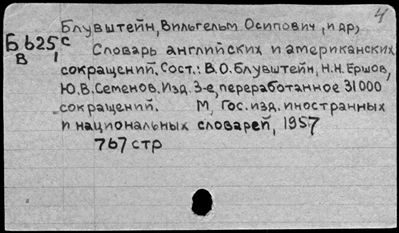 4
Блувштейн, Вильгельм Осипович, и др,
Б 625, с
В 1
Словарь английских и американских
сокращений. Сост.: В.О. Блувштейн, Н.Н. Ершов,
Ю.В. Семенов. Изд. 3-е, переработанное 31000
сокращений. М, Гос. изд. иностранных
и национальных словарей, 1957
767 стр